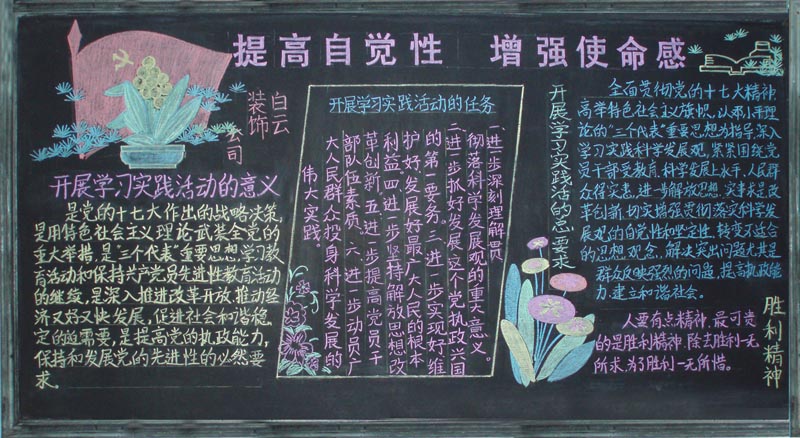 提高自觉性 增强使命感
白云
装饰
公司
开展学习实践活动的意义
是党的十七大作出的战略决策,
是用特色社会主义理论武装全党的
重大举措,是"三个代表"重要思想学习教
育活动和保持共产党员先进性教育活动
的继续,是深入推进改革开放,推动经
济又好又快发展,促进社会和谐稳
定的迫需要,是提高党的执政能力,
保持和发展党的先进性的必然要
求。
开展学习实践活动的任务
一、进步深刻理解贯
彻落科学发展观的重大意义
二、进一步抓好发展这个党执政兴国
的第一要务。三、进一步实现好维
护好发展好最广大人民的根本
利益、四、进一步坚持解放思想改
革创新、五、进一步提高党员干
部队伍素质、六、进一步动员广
大人民群众投身科学发展的
伟大实践。
开展学习实践活的总要求
全面贯彻党的十七大精神
高举特色社会主义旗帜,以邓小平理
论的"三个代表"重要思想为指导,深入
学习实践科学发展观,紧紧围绕党
员干部受教育,科学发展上水平,人民群
众得实惠,进一步解放思想,实事求是改
革创新,切实增强贯彻落实科学发
展观的自觉性和坚定性,转变不适合
的思想观念,解决突出问题尤其是
群众反映强烈的问题,提高执政能
力,建立和谐社会。
人要有点精神,最可贵
的是胜利精神,除去胜利一无
所求,为了胜利一无所惜。
胜利精神